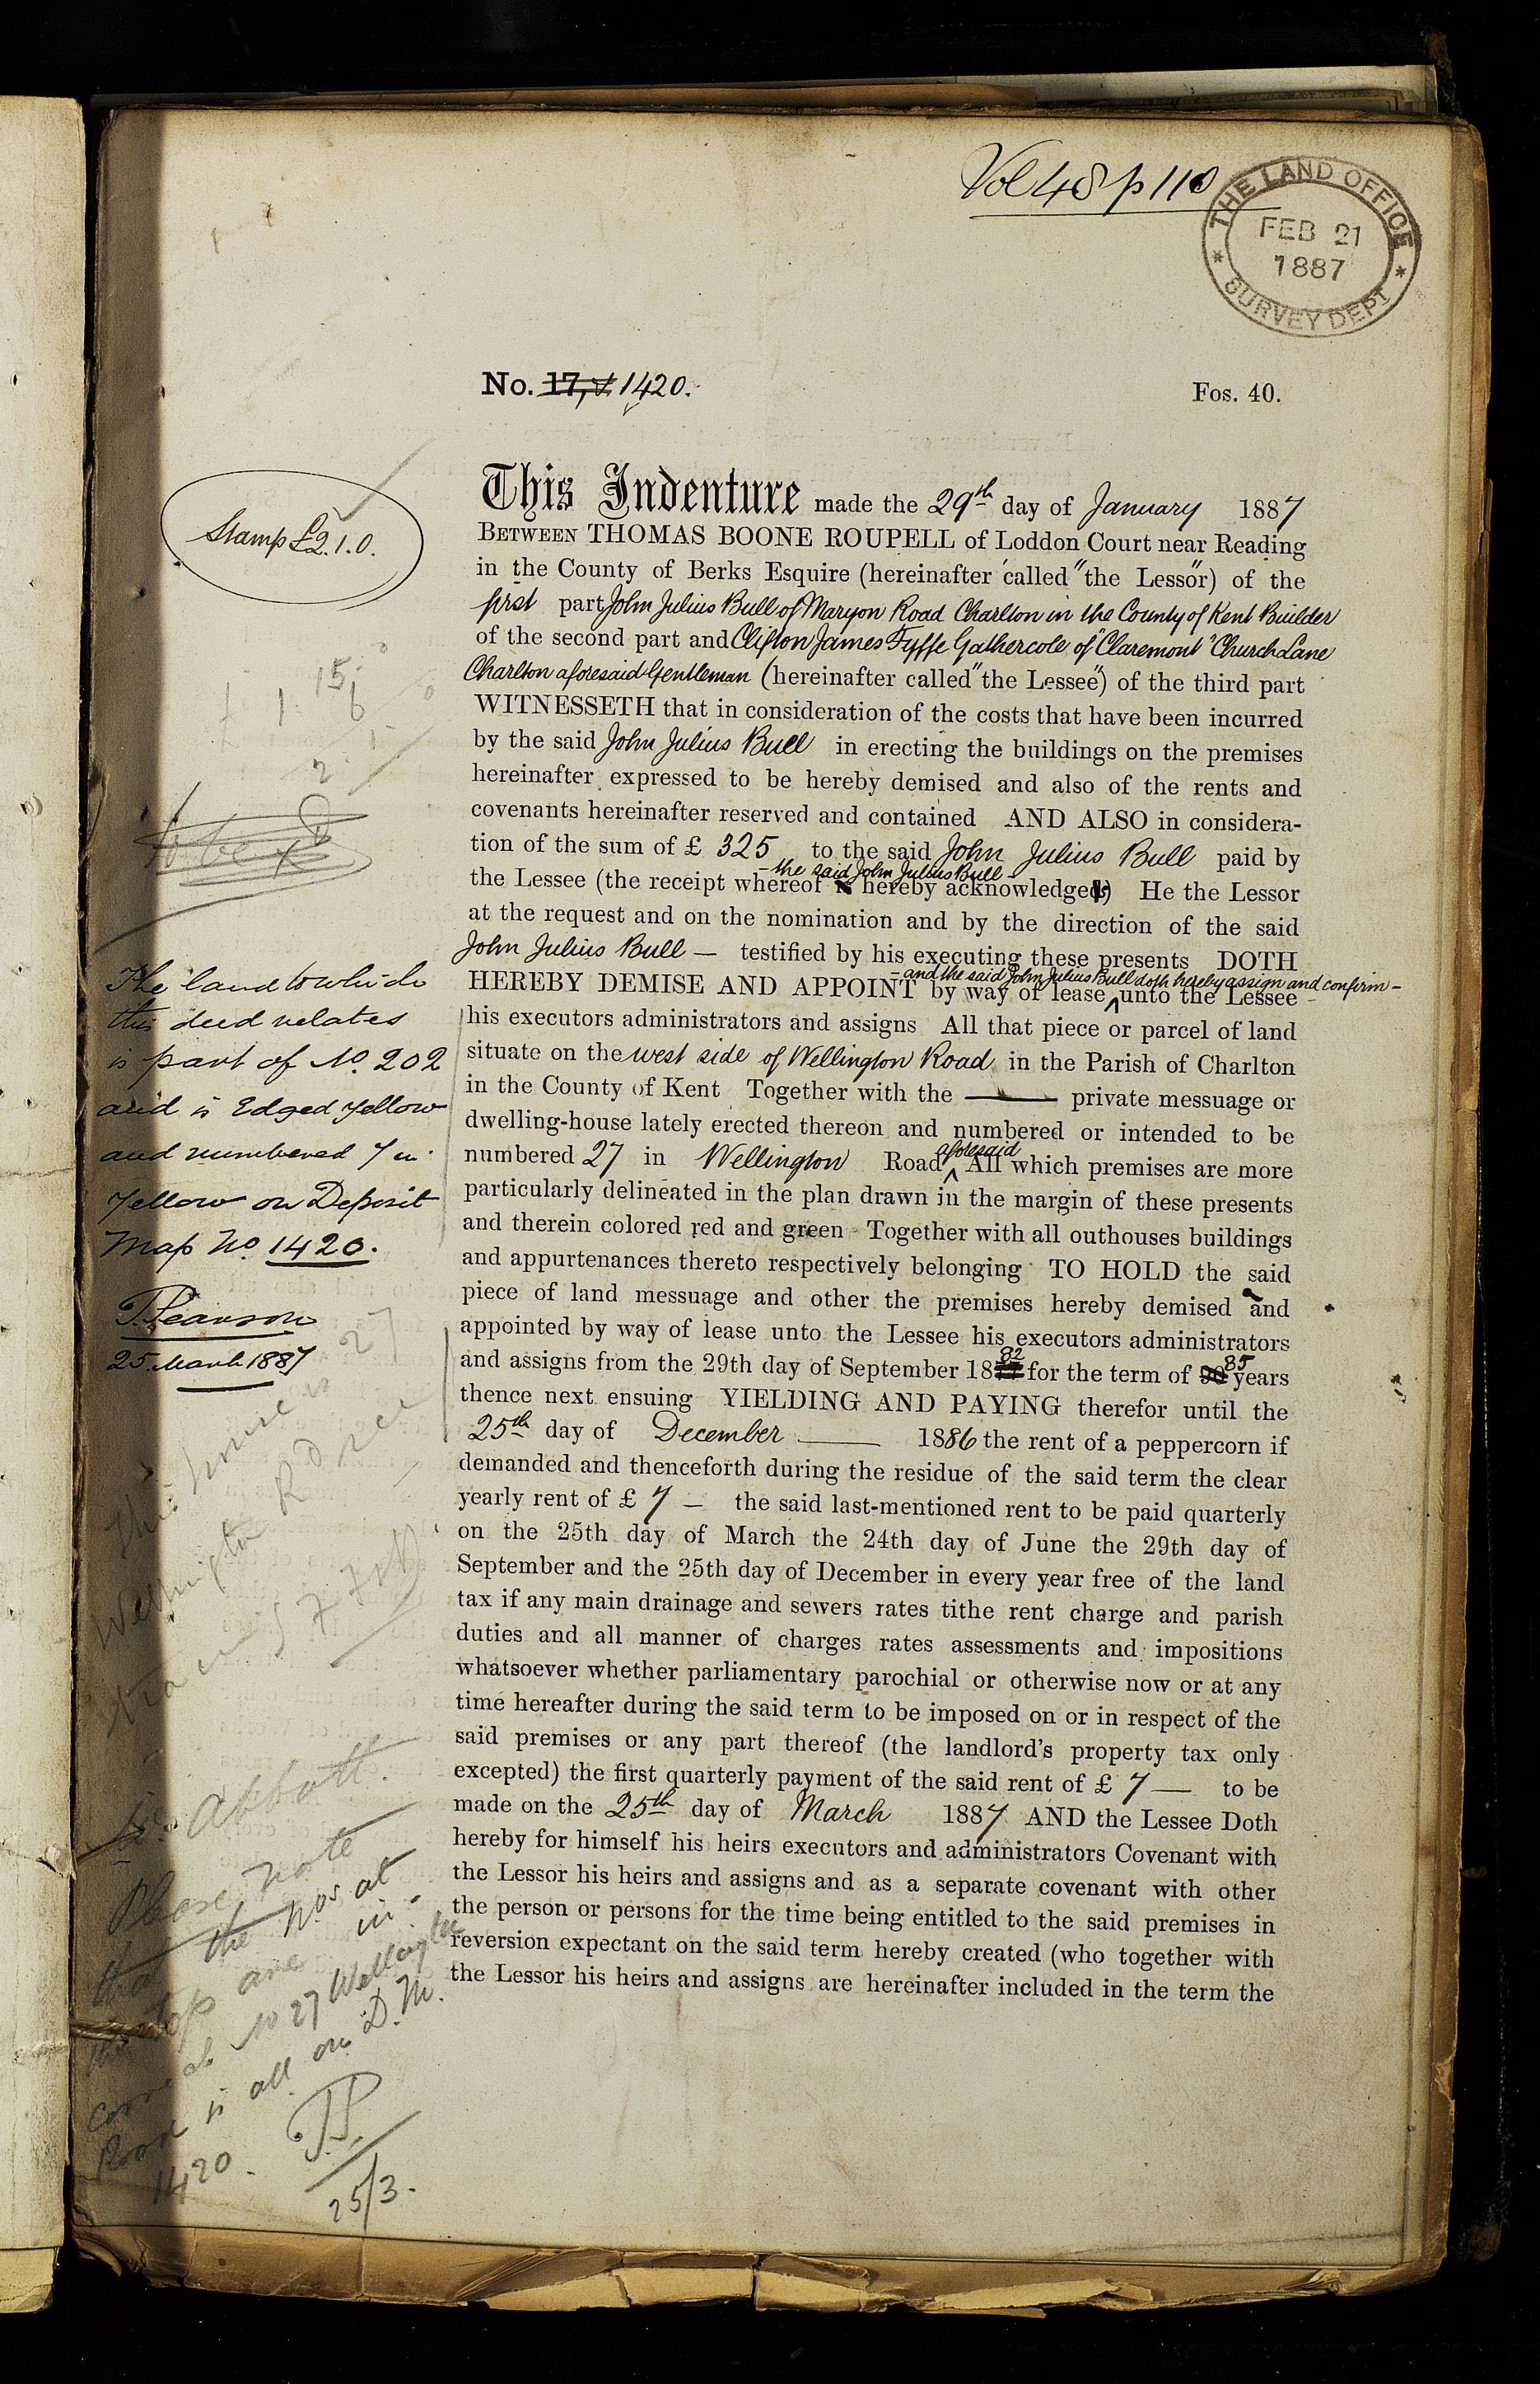 Vol 48 p 110
THE LAND OFFICE
FEB 21
1887
SURVEY DEPT
No. 17, 1420.
Fos. 40.
Stamp £2.1.0.
This Indenture made the 29th day of January 1887
BETWEEN THOMAS BOONE ROUPELL of Loddon Court near Reading
in the County of Berks Esquire (hereinafter called "the Lessor") of the
first part John Julius Bull of Maryon Road Charlton in the County of Kent Builder
of the second part and Clifton James Fyffe Gathercole of "Claremont" Church Lane
Charlton aforesaid Gentleman (hereinafter called "the Lessee") of the third part
WITNESSETH that in consideration of the costs that have been incurred
by the said John Julius Bull in erecting the buildings on the premises
hereinafter expressed to be hereby demised and also of the rents and
covenants hereinafter reserved and contained AND ALSO in considera-
tion of the sum of £ 325 to the said John Julius Bull paid by
– the said John Julius Bull –
the Lessee (the receipt whereof is hereby acknowledges) He the Lessor
at the request and on the nomination and by the direction of the said
John Julius Bull — testified by his executing these presents DOTH
– and the said John Julius Bull doth hereby assign and confirm –
HEREBY DEMISE AND APPOINT by way of lease unto the Lessee
his executors administrators and assigns All that piece or parcel of land
situate on the west side of Wellington Road in the Parish of Charlton
in the County of Kent Together with the — private messuage or
dwelling-house lately erected thereon and numbered or intended to be
aforesaid
numbered 27 in Wellington Road All which premises are more
particularly delineated in the plan drawn in the margin of these presents
and therein colored red and green Together with all outhouses buildings
and appurtenances thereto respectively belonging TO HOLD the said
piece of land messuage and other the premises hereby demised and
appointed by way of lease unto the Lessee his executors administrators
and assigns from the 29th day of September 1882 for the term of 85 years
thence next ensuing YIELDING AND PAYING therefor until the
25th day of December — 1886 the rent of a peppercorn if
demanded and thenceforth during the residue of the said term the clear
yearly rent of £ 7 – the said last-mentioned rent to be paid quarterly
on the 25th day of March the 24th day of June the 29th day of
September and the 25th day of December in every year free of the land
tax if any main drainage and sewers rates tithe rent charge and parish
duties and all manner of charges rates assessments and impositions
whatsoever whether parliamentary parochial or otherwise now or at any
time hereafter during the said term to be imposed on or in respect of the
said premises or any part thereof (the landlord's property tax only
excepted) the first quarterly payment of the said rent of £ 7 — to be
made on the 25th day of March 1887 AND the Lessee Doth
hereby for himself his heirs executors and administrators Covenant with
the Lessor his heirs and assigns and as a separate covenant with other
the person or persons for the time being entitled to the said premises in
reversion expectant on the said term hereby created (who together with
the Lessor his heirs and assigns are hereinafter included in the term the
The land to which
this deed relates
is part of No. 202
and is Edged yellow
and numbered 7 in
yellow on Deposit
Map No. 1420.
T. Pearson
25 March 1887
Abbott.
Please note
that the Nos at
the top are in-
correct No 27 Wellington
Road is all on D.M.
1420.
T.P.
25/3.